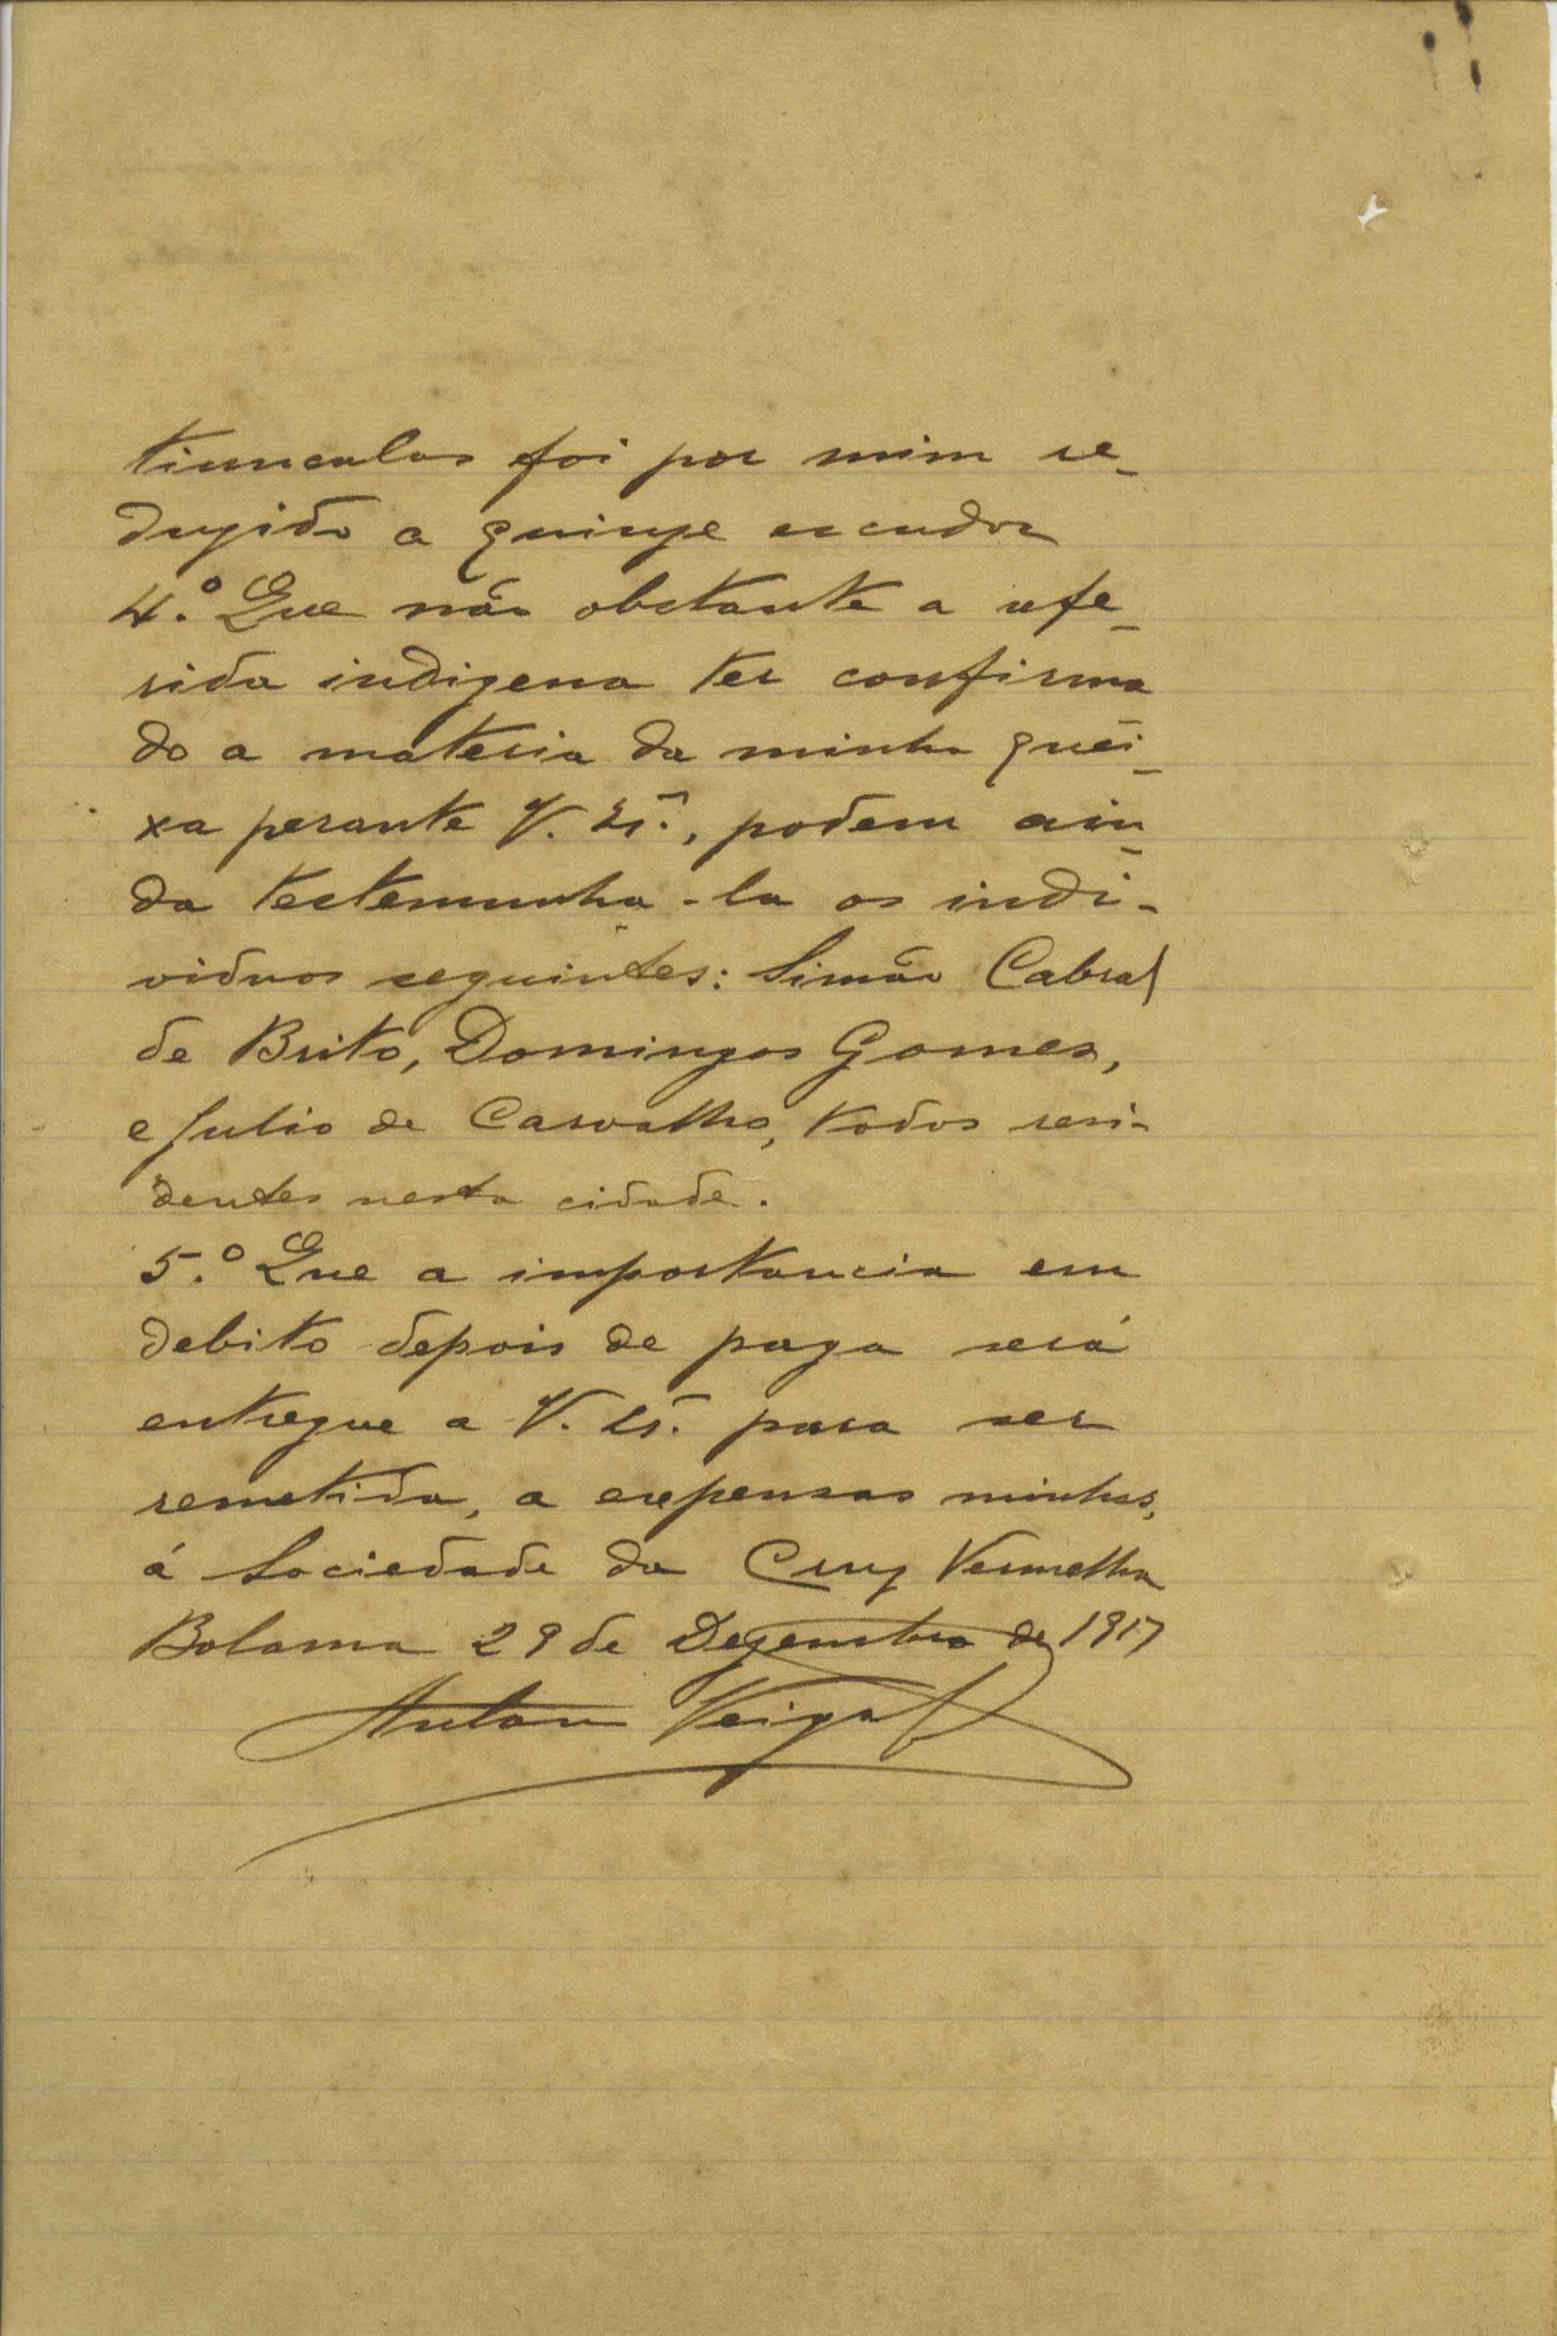 tiunculas foi por mim re-
duzido a quinze escudos
4.º Que não obstante a refe-
rida indigena ter confirma
do a materia da minha quei-
xa perante V. Ex.ª, podem ain-
da testemunha-la os indi-
viduos seguintes: Simão Cabral
de Brito, Domingos Gomes,
e Julio de Carvalho, todos resi-
dentes nesta cidade.
5.º Que a importancia em
debito depois de paga será
entregue a V. Ex.ª para ser
remetida, a expensas minhas,
á Sociedade da Cruz Vermelha
Bolama 29 de Dezembro de 1917
Veiga